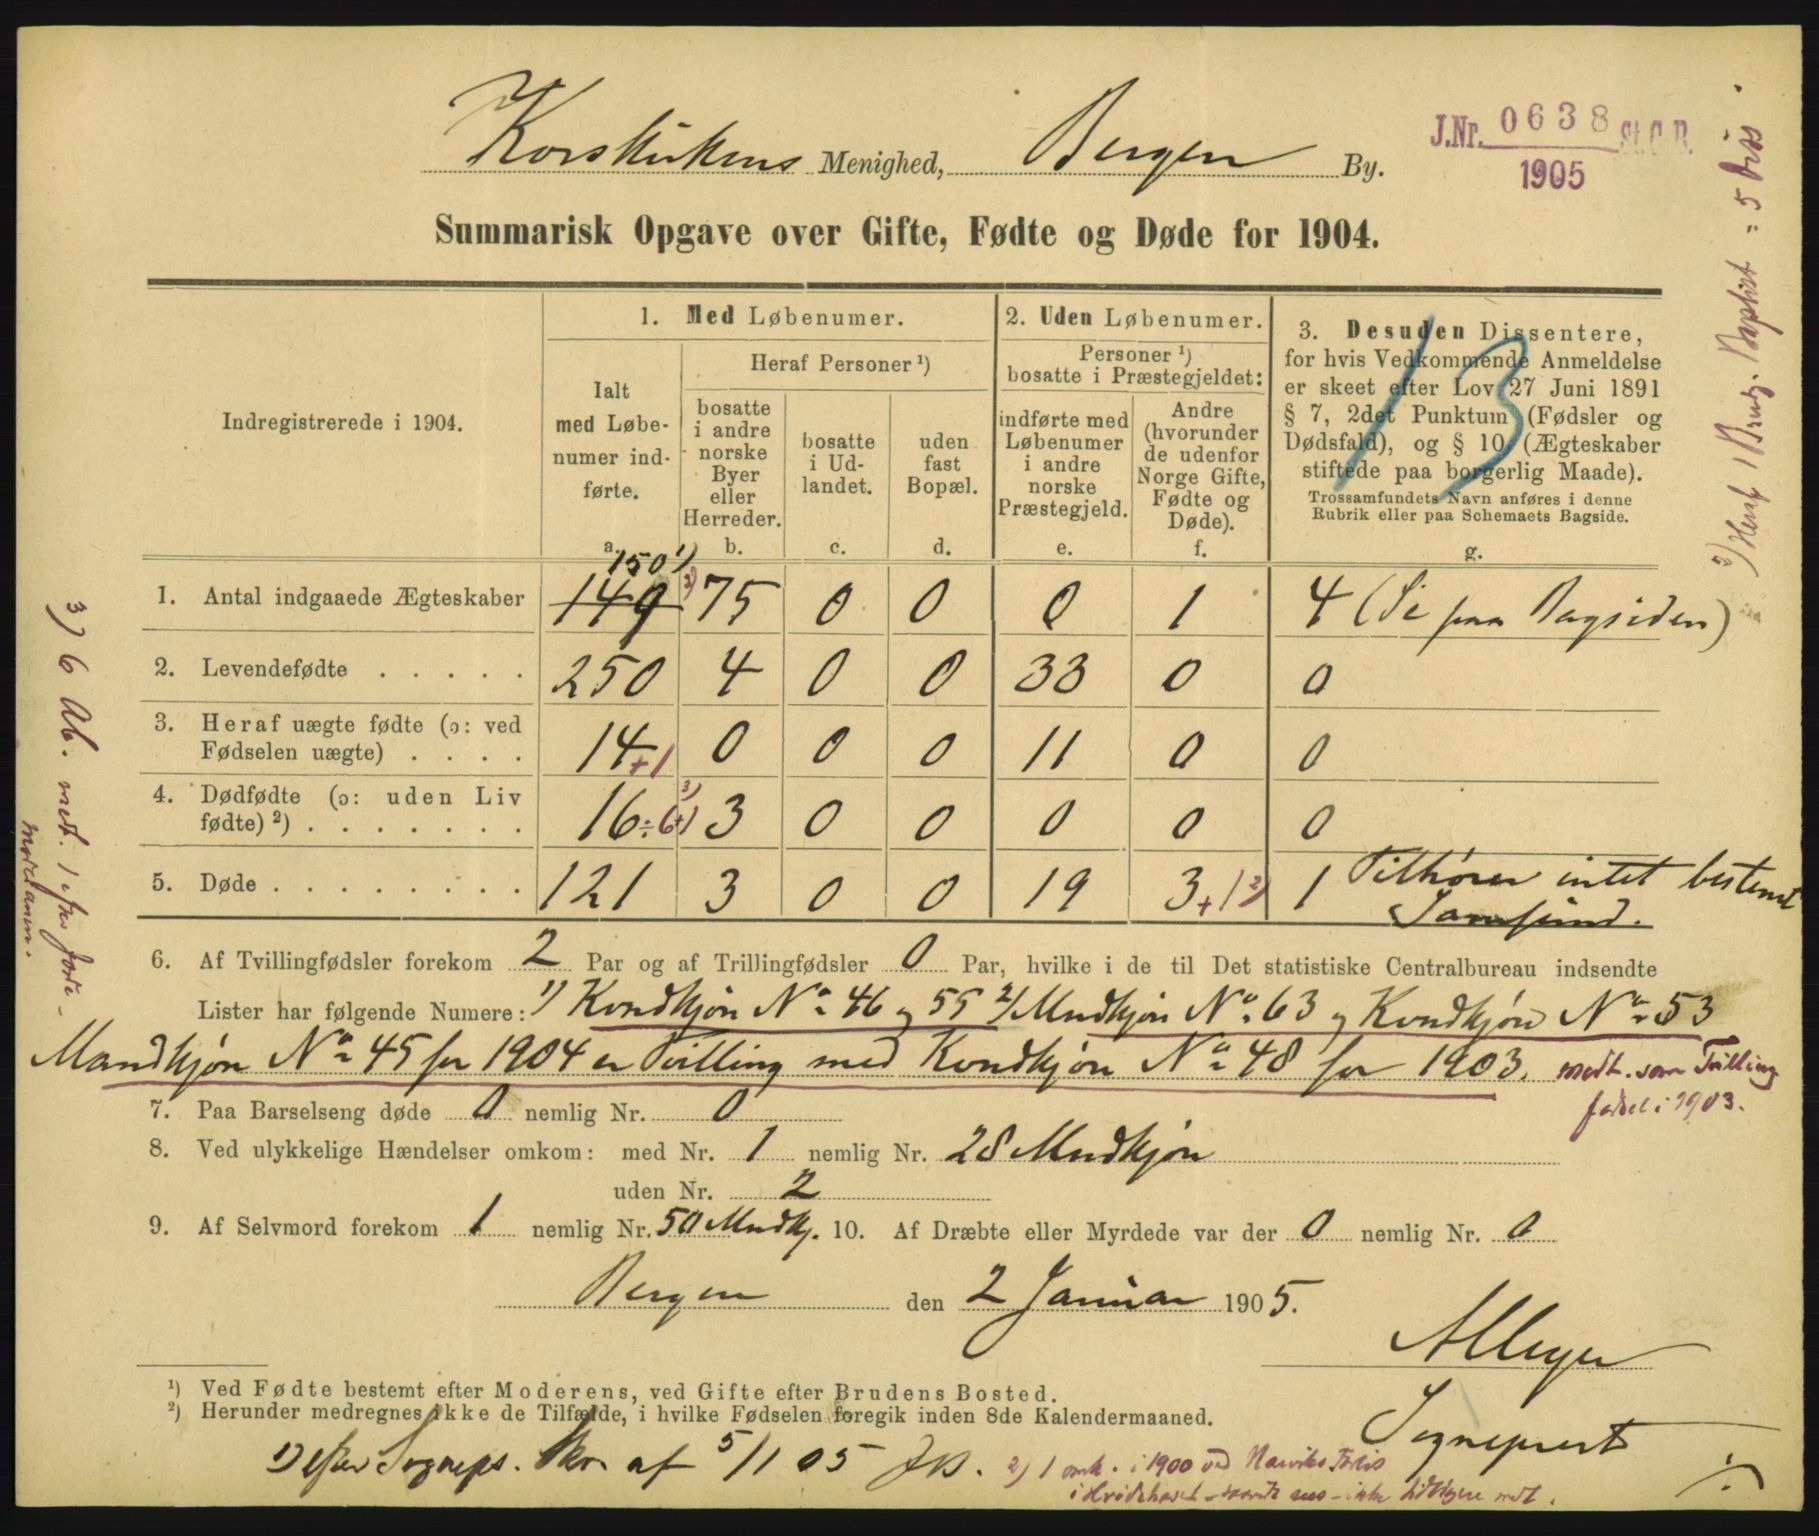 Korskirkens Menighed, Bergen By.
J.Nr. 0638 St.C.B.
1905
Summarisk Opgave over Gifte, Fødte og Døde for 1904.
Indregistrerede i 1904.
1. Med Løbenumer.
Ialt med Løbenumer indførte.
a.
Heraf Personer ¹)
bosatte i andre norske Byer eller Herreder.
b.
bosatte i Udlandet.
c.
uden fast Bopæl.
d.
2. Uden Løbenumer.
Personer ¹) bosatte i Præstegjeldet:
indførte med Løbenumer i andre norske Præstegjeld.
e.
Andre (hvorunder de udenfor Norge Gifte, Fødte og Døde).
f.
3. Desuden Dissentere,
for hvis Vedkommende Anmeldelse
er skeet efter Lov 27 Juni 1891
§ 7, 2det Punktum (Fødsler og
Dødsfald), og § 10 (Ægteskaber
stiftede paa borgerlig Maade).
Trossamfundets Navn anføres i denne
Rubrik eller paa Schemaets Bagside.
g.
13
150 ¹)
1. Antal indgaaede Ægteskaber 149 ²) 75 0 0 0 1 4 (Se paa Bagsiden)
2. Levendefødte 250 4 0 0 33 0 0
3. Heraf uægte fødte (ɔ: ved
Fødselen uægte) 14 +1 0 0 0 11 0 0
4. Dødfødte (ɔ: uden Liv
fødte) ²) 16 ÷6 ³) 3 0 0 0 0 0
5. Døde 121 3 0 0 19 3 +1 ²) 1 Tilhører intet bestemt
Samfund.
6. Af Tvillingfødsler forekom 2 Par og af Trillingfødsler 0 Par, hvilke i de til Det statistiske Centralbureau indsendte
Lister har følgende Numere: 1) Kvndkjøn No 46 og 55 2) Mndkjøn No 63 og Kvndkjøn No 53
Mandkjøn No 45 for 1904 er Tvilling med Kvndkjøn No 48 for 1903. medt. som Tvilling
fødsel i 1903.
7. Paa Barselseng døde 0 nemlig Nr. 0
8. Ved ulykkelige Hændelser omkom: med Nr. 1 nemlig Nr. 28 Mndkjøn
uden Nr. 2
9. Af Selvmord forekom 1 nemlig Nr. 50 Mndkj. 10. Af Dræbte eller Myrdede var der 0 nemlig Nr. 0
Bergen den 2 Januar 1905.
AMeyer
Sogneprest
¹) Ved Fødte bestemt efter Moderens, ved Gifte efter Brudens Bosted.
²) Herunder medregnes ikke de Tilfælde, i hvilke Fødselen foregik inden 8de Kalendermaaned.
1) efter Sogneps. Skr. af 5/1 05
2) 1 omk. i 1900 ved
i - ikke tidligere medt.
3) 6 Ab. med. 1 efter
2) Heraf 1 Baptist = 5 Diss